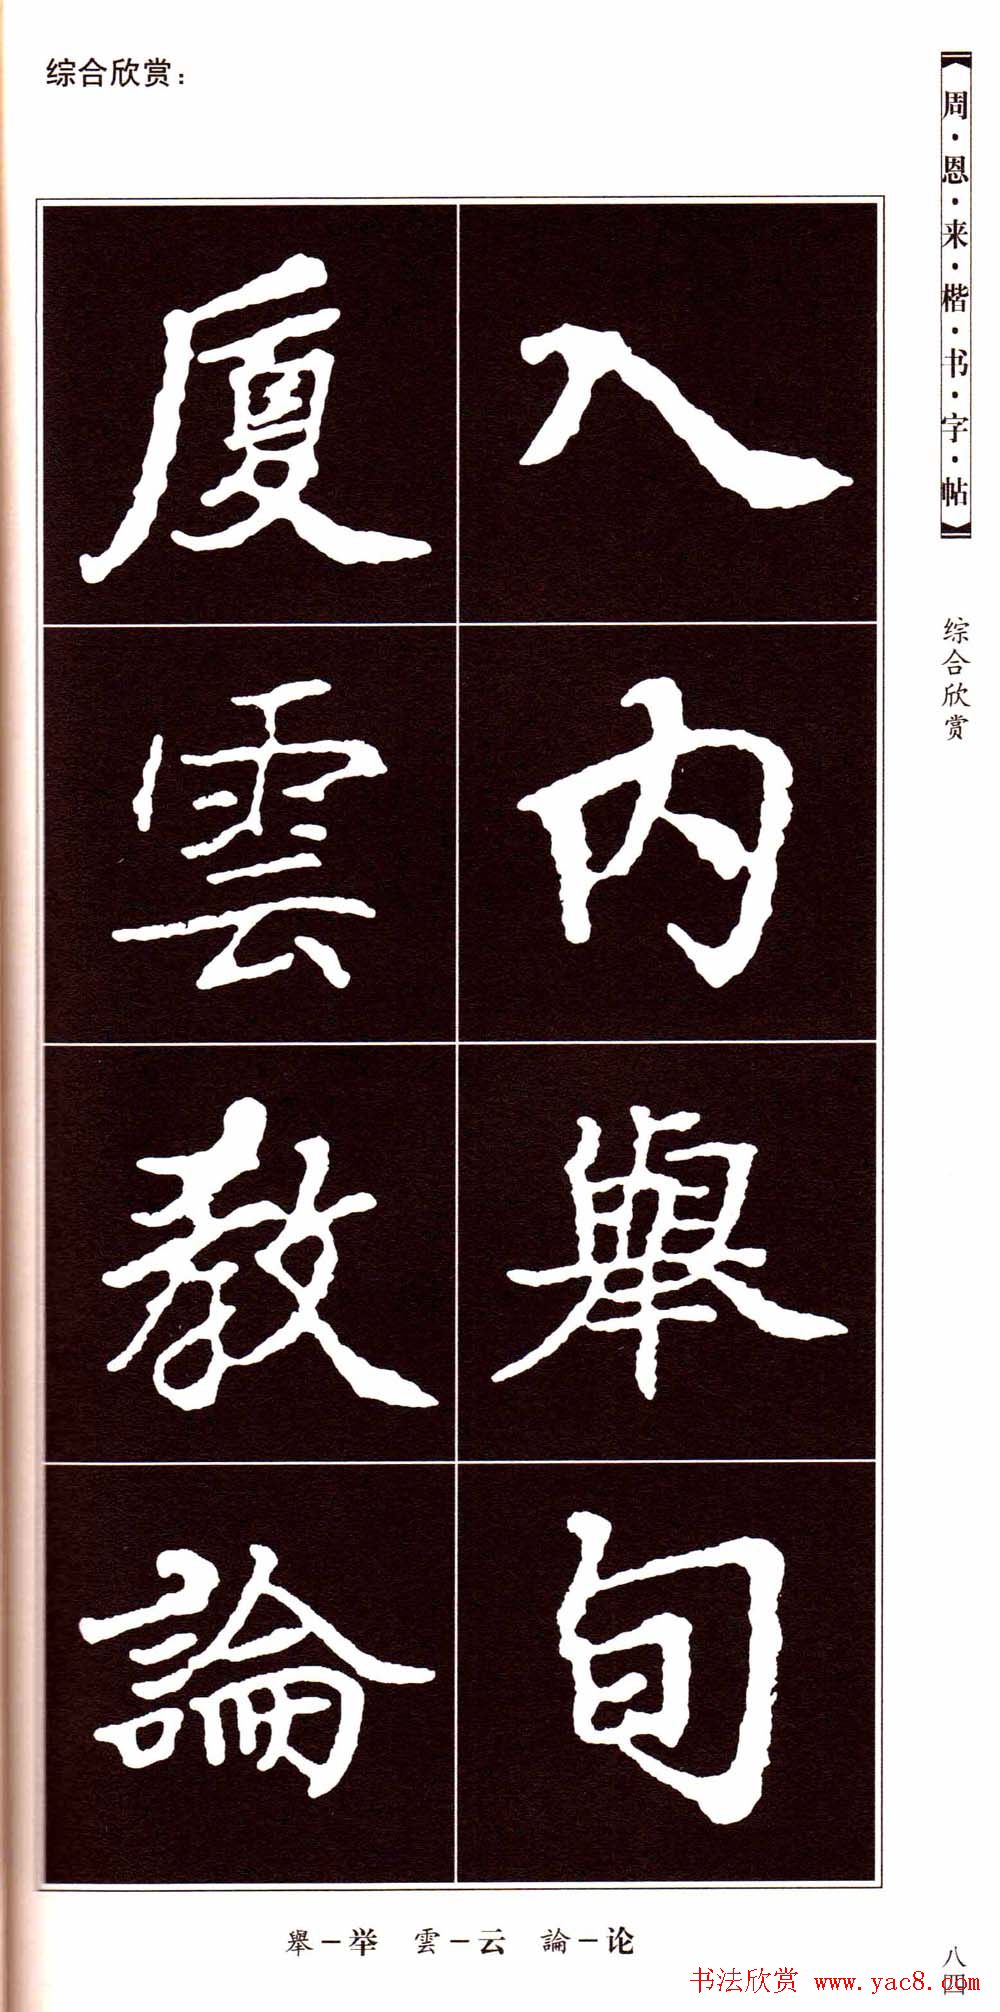 综合欣赏：
周·恩·来·楷·书·字·帖
综合欣赏
入内舉旬
厦雲教論
舉－举　雲－云　論－论
八四
书法欣赏 www.yac8.com